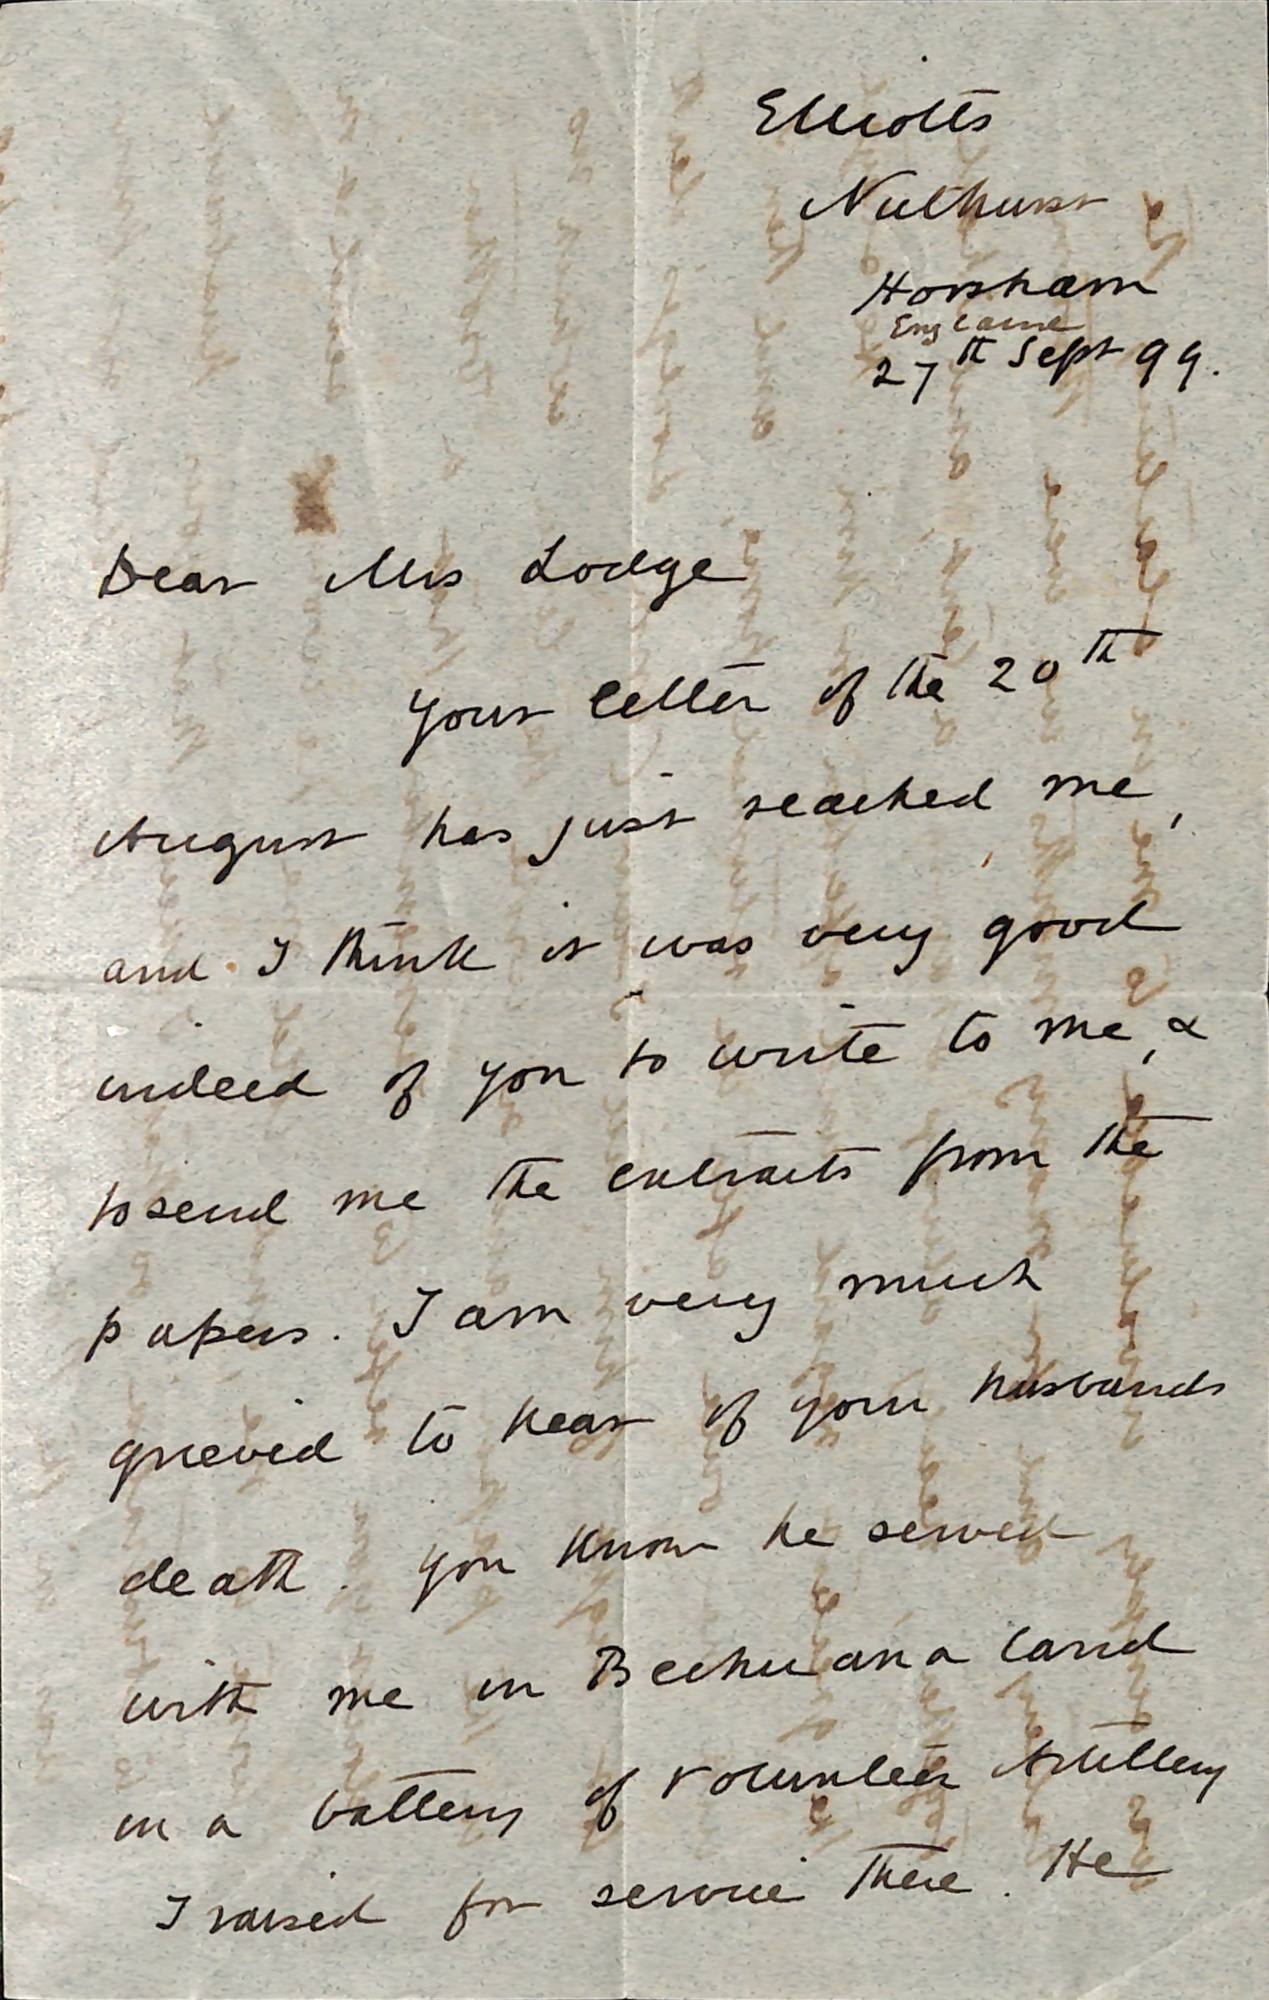 Elliotts
Nuthurst
Horsham
England
27th Sept 99.
Dear Mrs Lodge
Your letter of the 20th
August has just reached me,
and I think it was very good
indeed of you to write to me, &
to send me the extracts from the
papers. I am very much
grieved to hear of your husbands
death. You know he served
with me in Bechuanaland
in a battery of Volunteer Artillery
I raised for service there. He